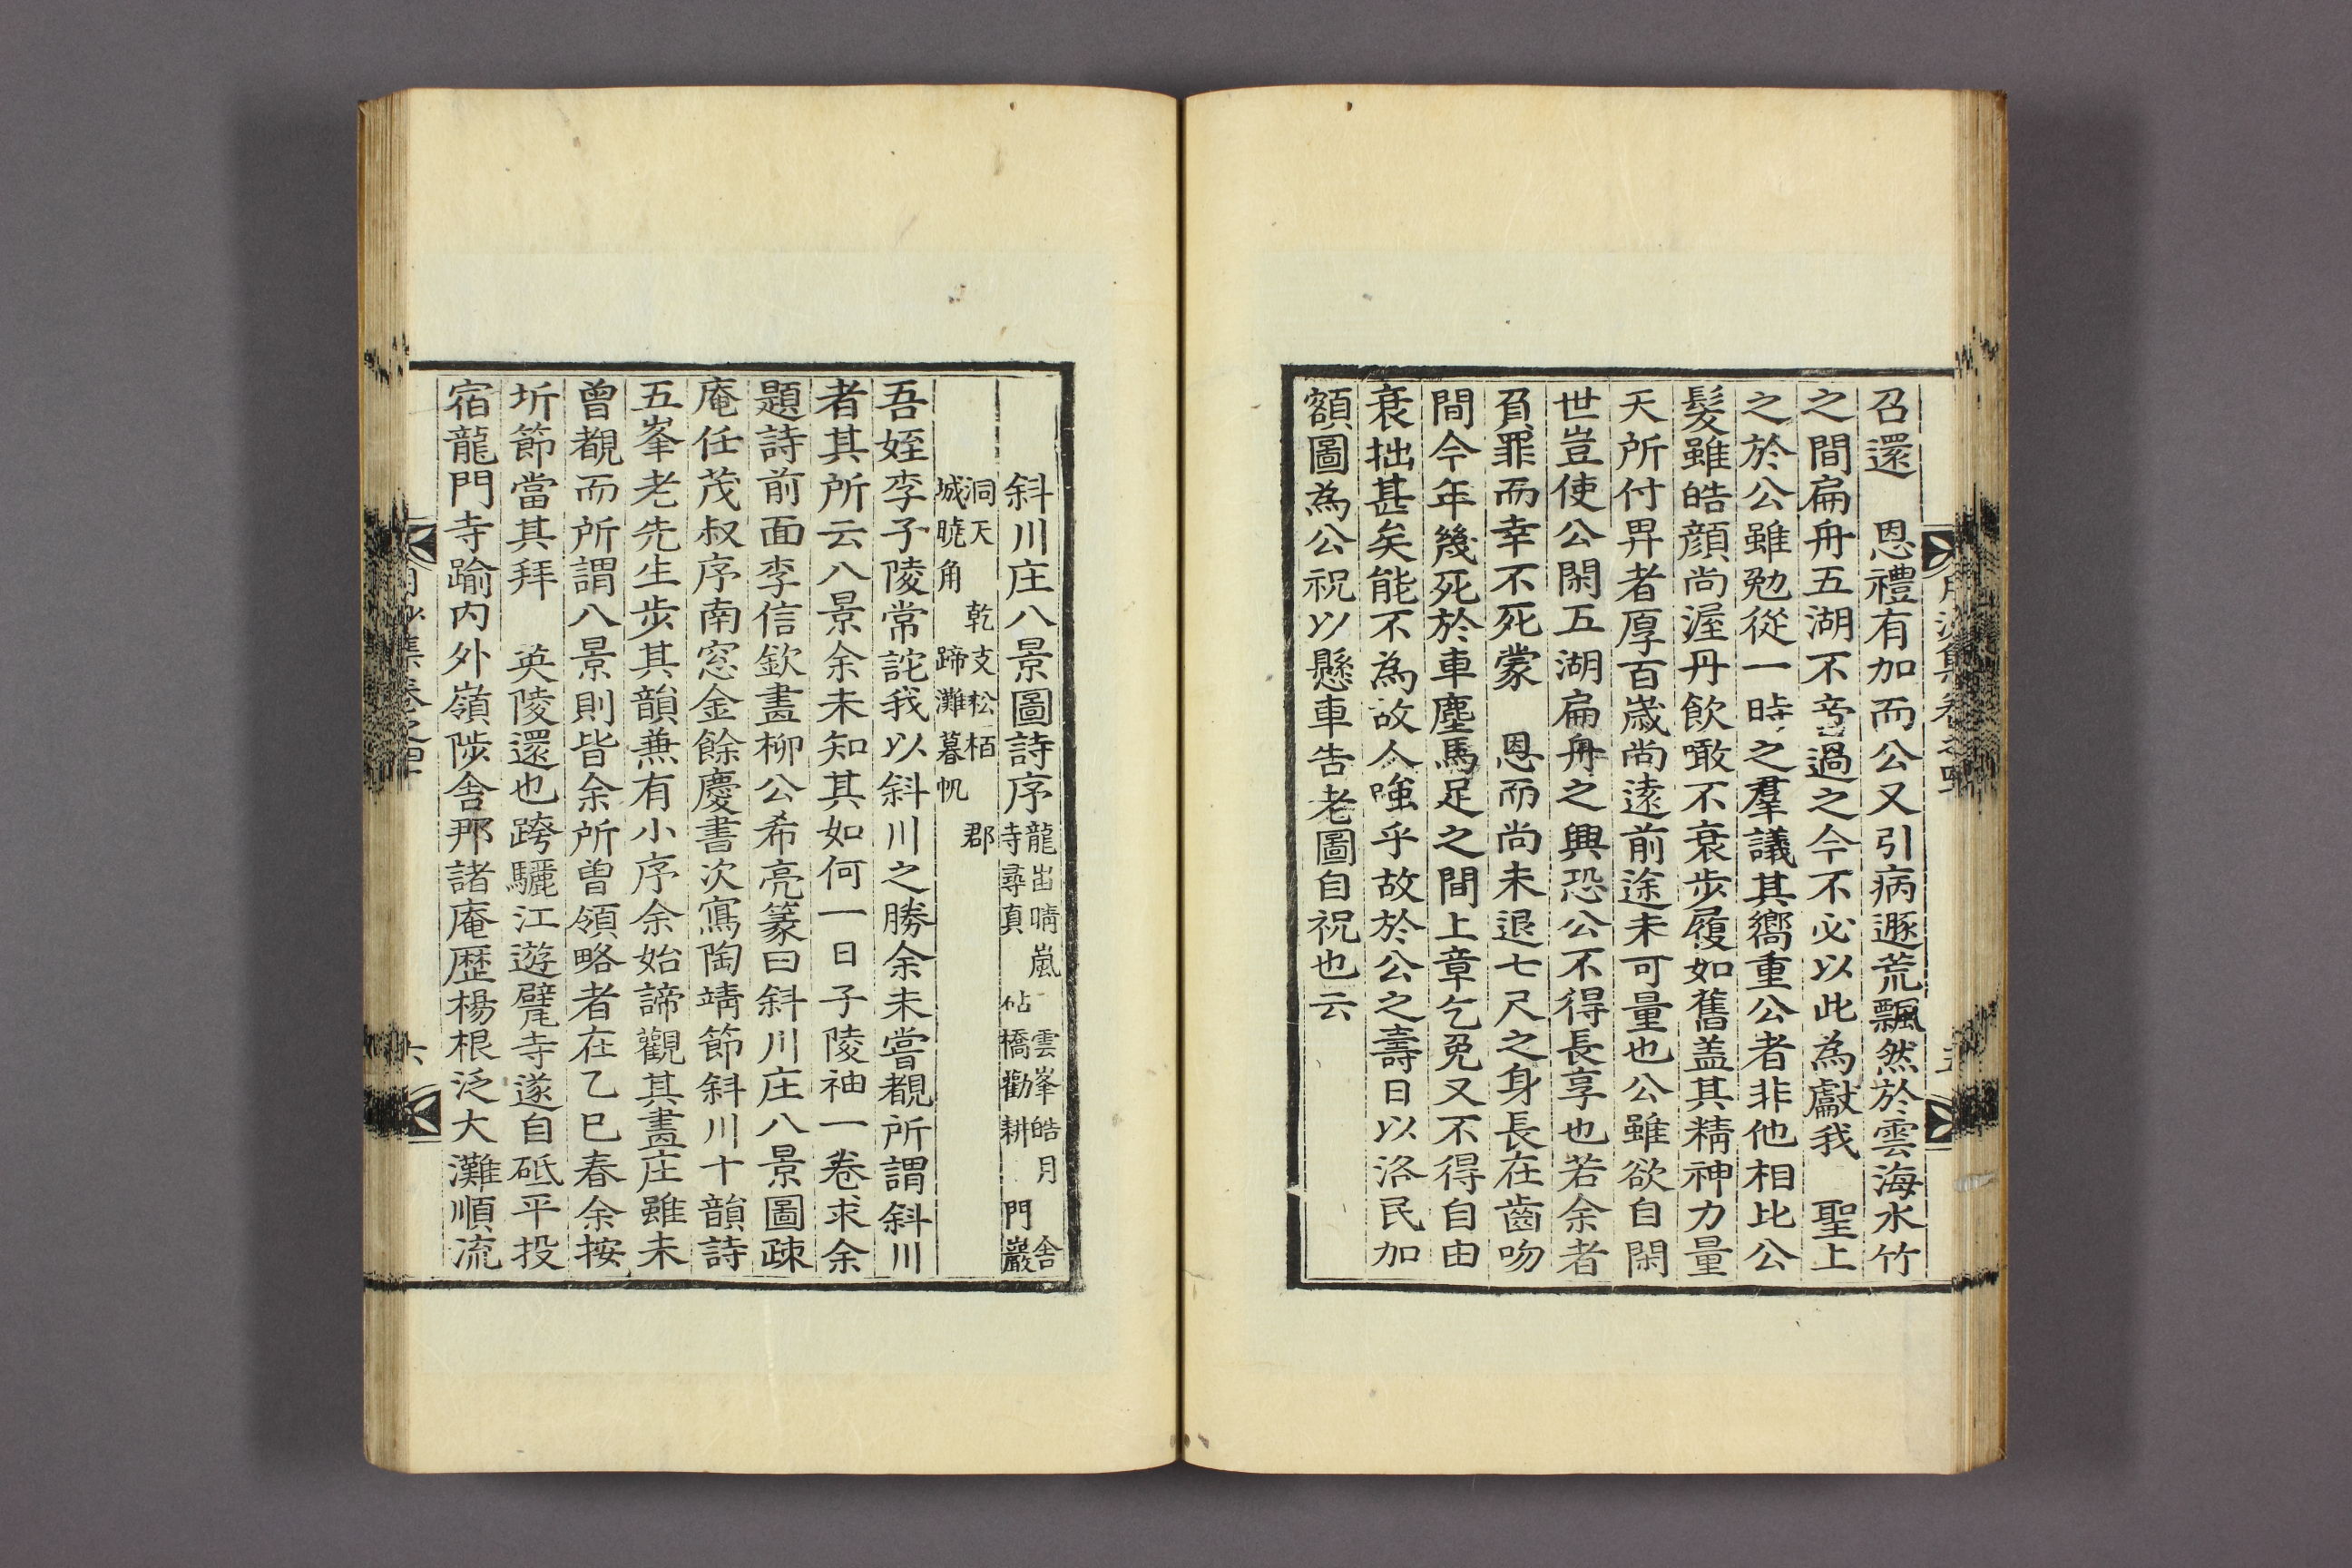 召還 恩禮有加而公又引病遯荒飄然於雲海水竹
之間扁舟五湖不啻過之今不必以此為獻我 聖上
之於公雖勉從一時之羣議其嚮重公者非他相比公
髮雖皓顔尚渥丹飮噉不衰步履如舊盖其精神力量
天所付畀者厚百歲尚遠前途未可量也公雖欲自閑
世豈使公閑五湖扁舟之興恐公不得長享也若余者
負罪而幸不死蒙 恩而尚未退七尺之身長在齒吻
間今年幾死於車塵馬足之間上章乞免又不得自由
衰拙甚矣能不為故人嗤乎故於公之壽日以洛民加
額圖為公祝以懸車告老圖自祝也云
斜川庄八景圖詩序
龍岀晴嵐 雲峯皓月 舍
寺尋真 佔橋勸耕 門巖
洞天 乾支松栢 郡
城曉角 蹄灘暮帆
吾姪李子陵常詑我以斜川之勝余未嘗覩所謂斜川
者其所云八景余未知其如何一日子陵袖一卷求余
題詩前面李信欽畫柳公希亮篆曰斜川庄八景圖疎
庵任茂叔序南窓金餘慶書次寫陶靖節斜川十韻詩
五峯老先生步其韻兼有小序余始諦觀其畫庄雖未
曾覩而所謂八景則皆余所曾領略者在乙巳春余按
圻節當其拜 英陵還也跨驪江遊甓寺遂自砥平投
宿龍門寺踰内外嶺陟舍那諸庵歷楊根泛大灘順流
集卷之四
六